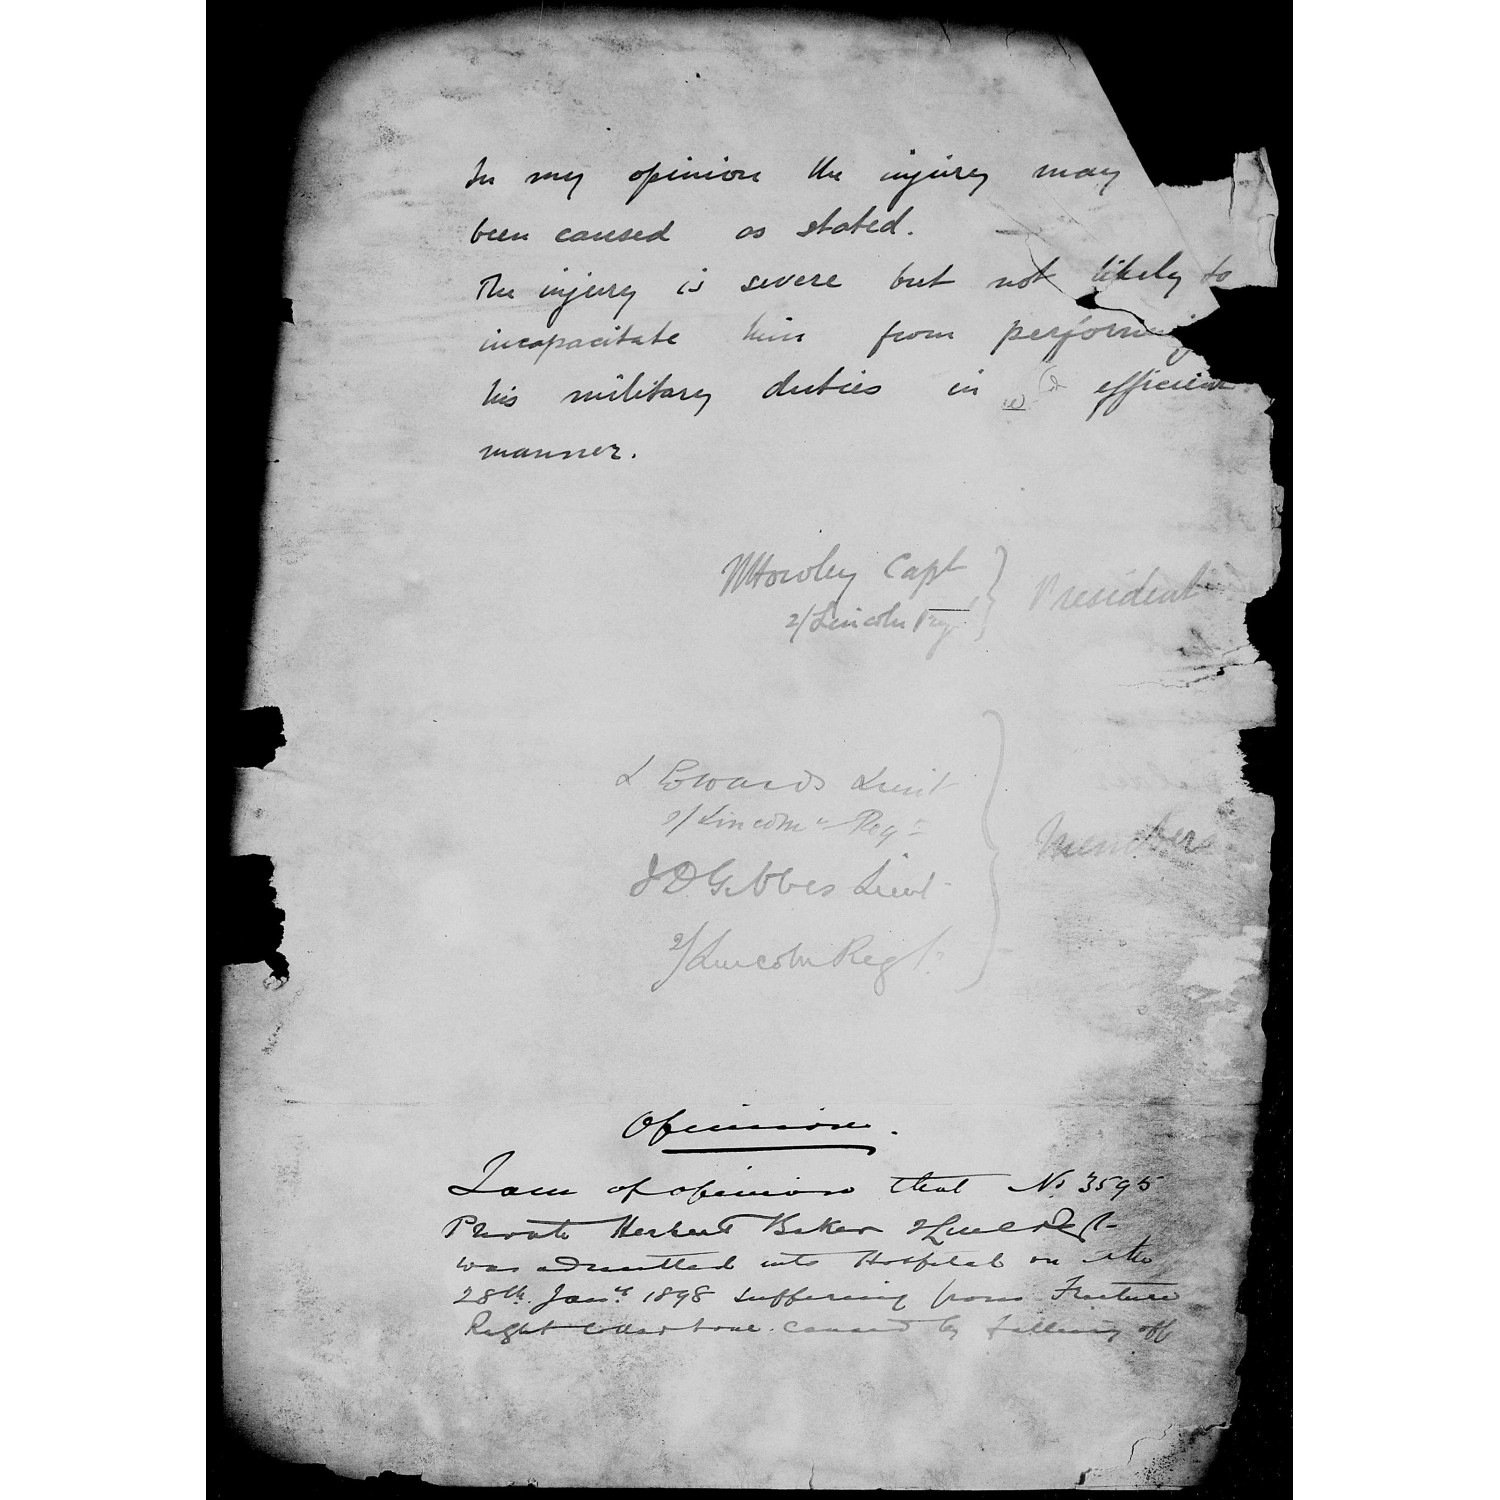 In my opinion the injury may
been caused as stated.
The injury is severe but not likely to
incapacitate him from performi
his military duties in efficient
manner.
Capt
2/Lincoln Reg President
L Edwards Lieut
2/Lincoln Regt
J D Gibbes Lieut Members
2/Lincoln Regt
Opinion.
I am of opinion that No 3595
Private Herbert Baker
was admitted into Hospital on the
28th Jany 1898 suffering from Fracture
Right collar bone caused by falling off